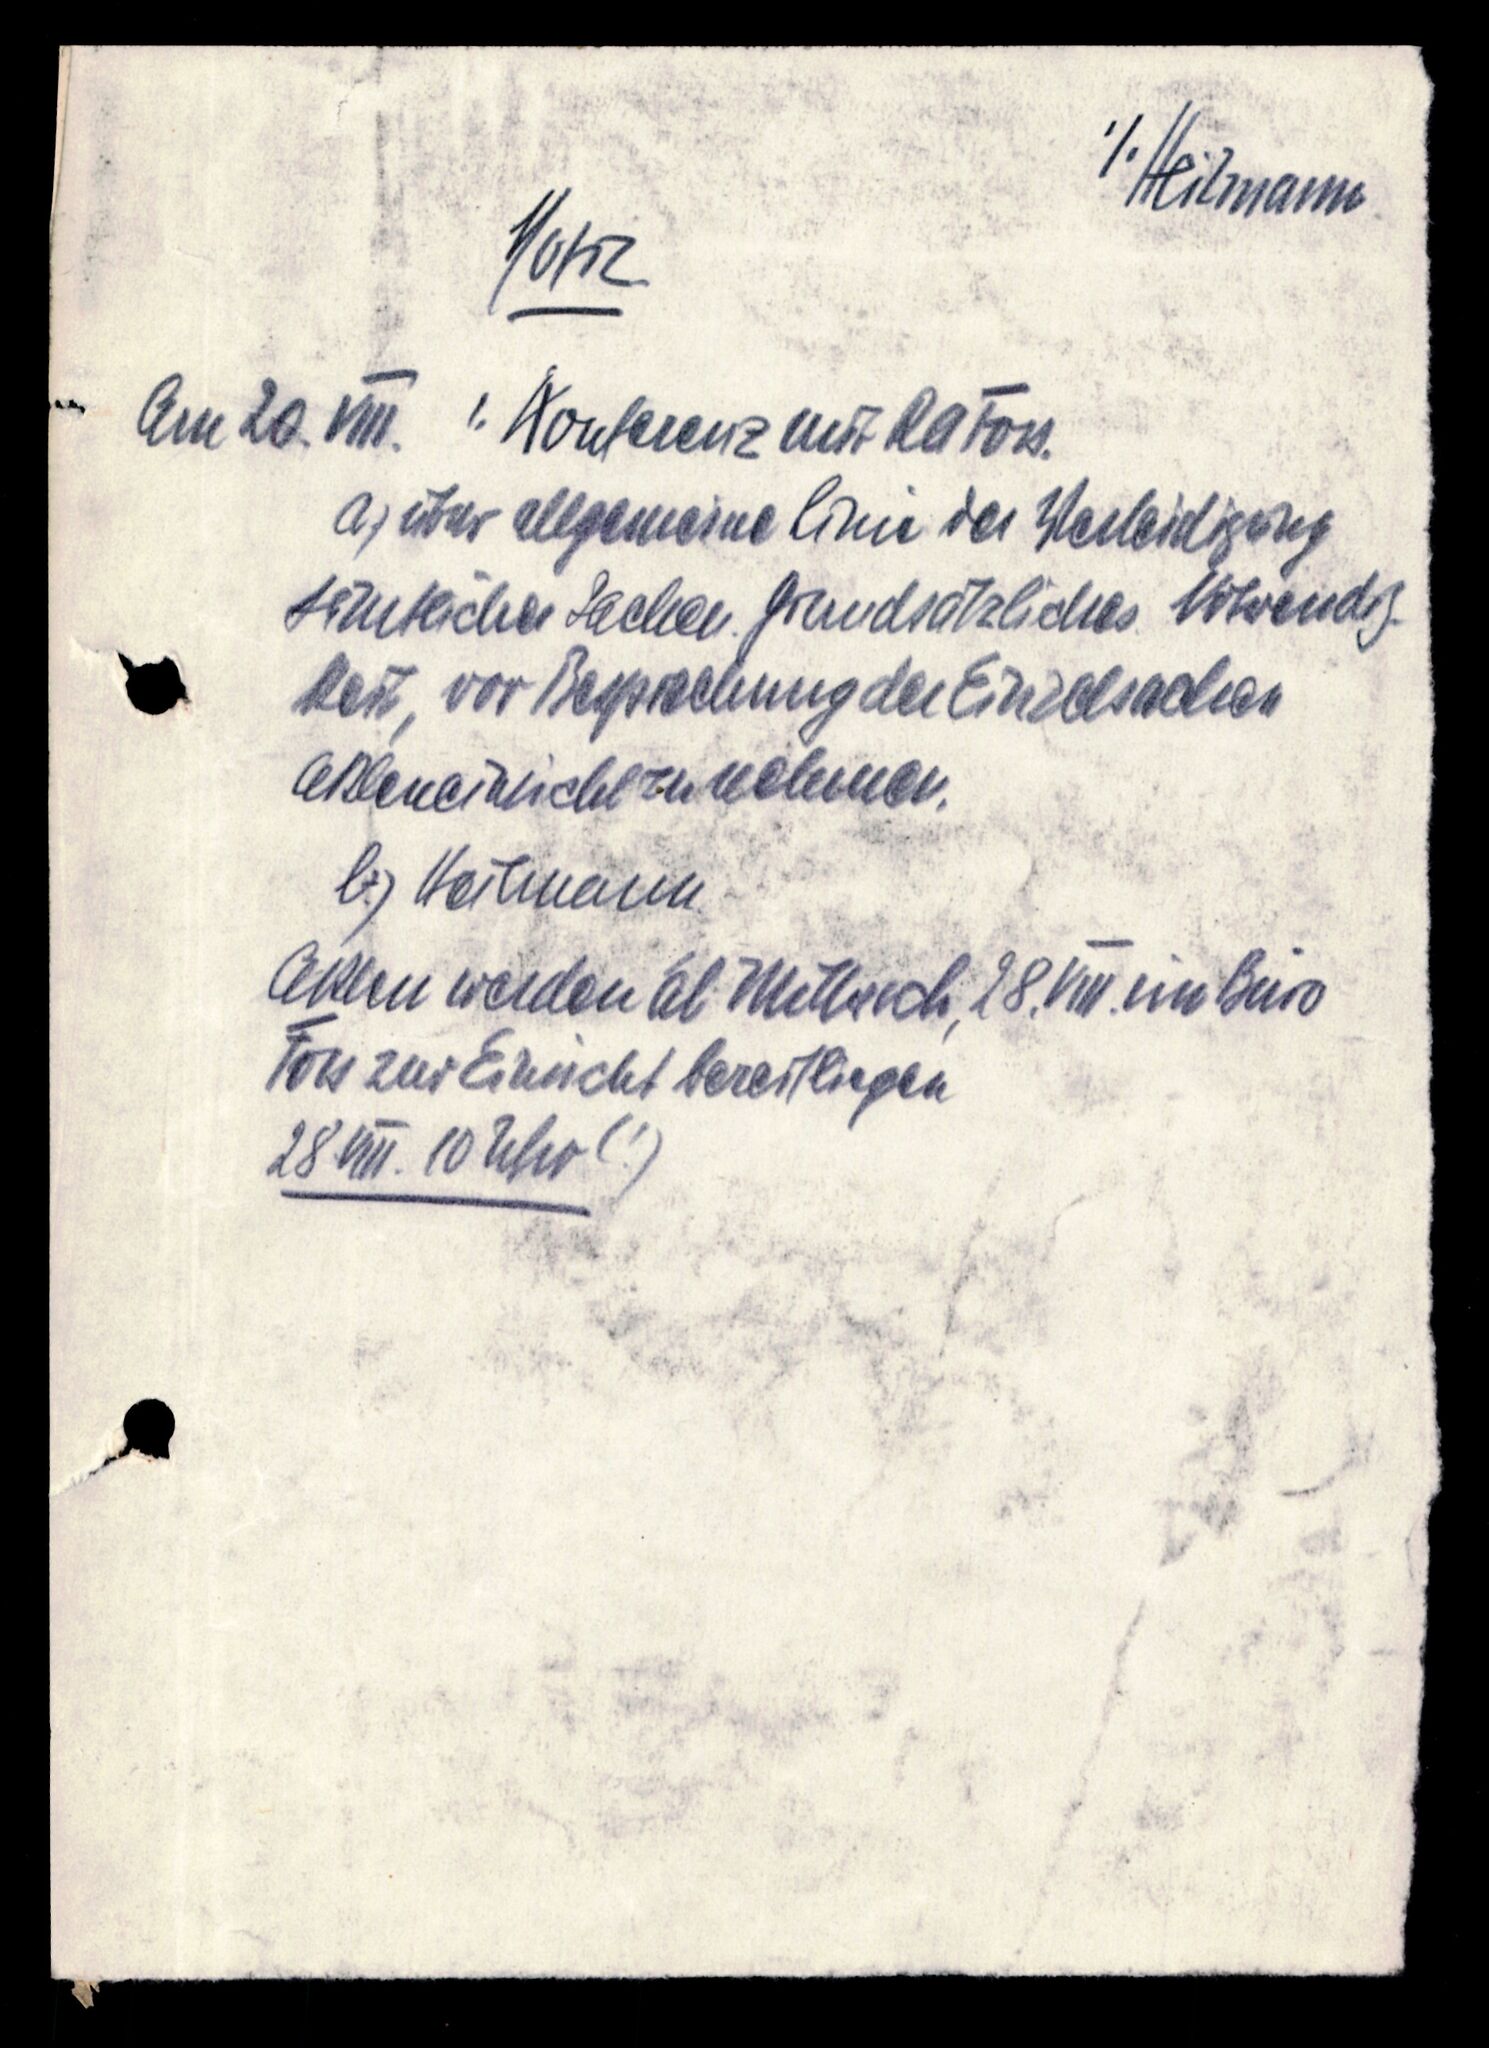 ·/. Heilmann
Notiz
Am 20. VIII. 1. Konferenz mit RA Foss.
a) über allgemeine Linie der Verteidigung
sämtlicher Sachen. Grundsätzliches. Notwendig-
keit, vor Besprechung der Einzelsachen
Akteneinsicht zu nehmen.
b.) Heilmann.
Akten werden ab Mittwoch, 28. VIII. im Büro
Foss zur Einsicht bereitliegen
28 VIII. 10 Uhr (!)